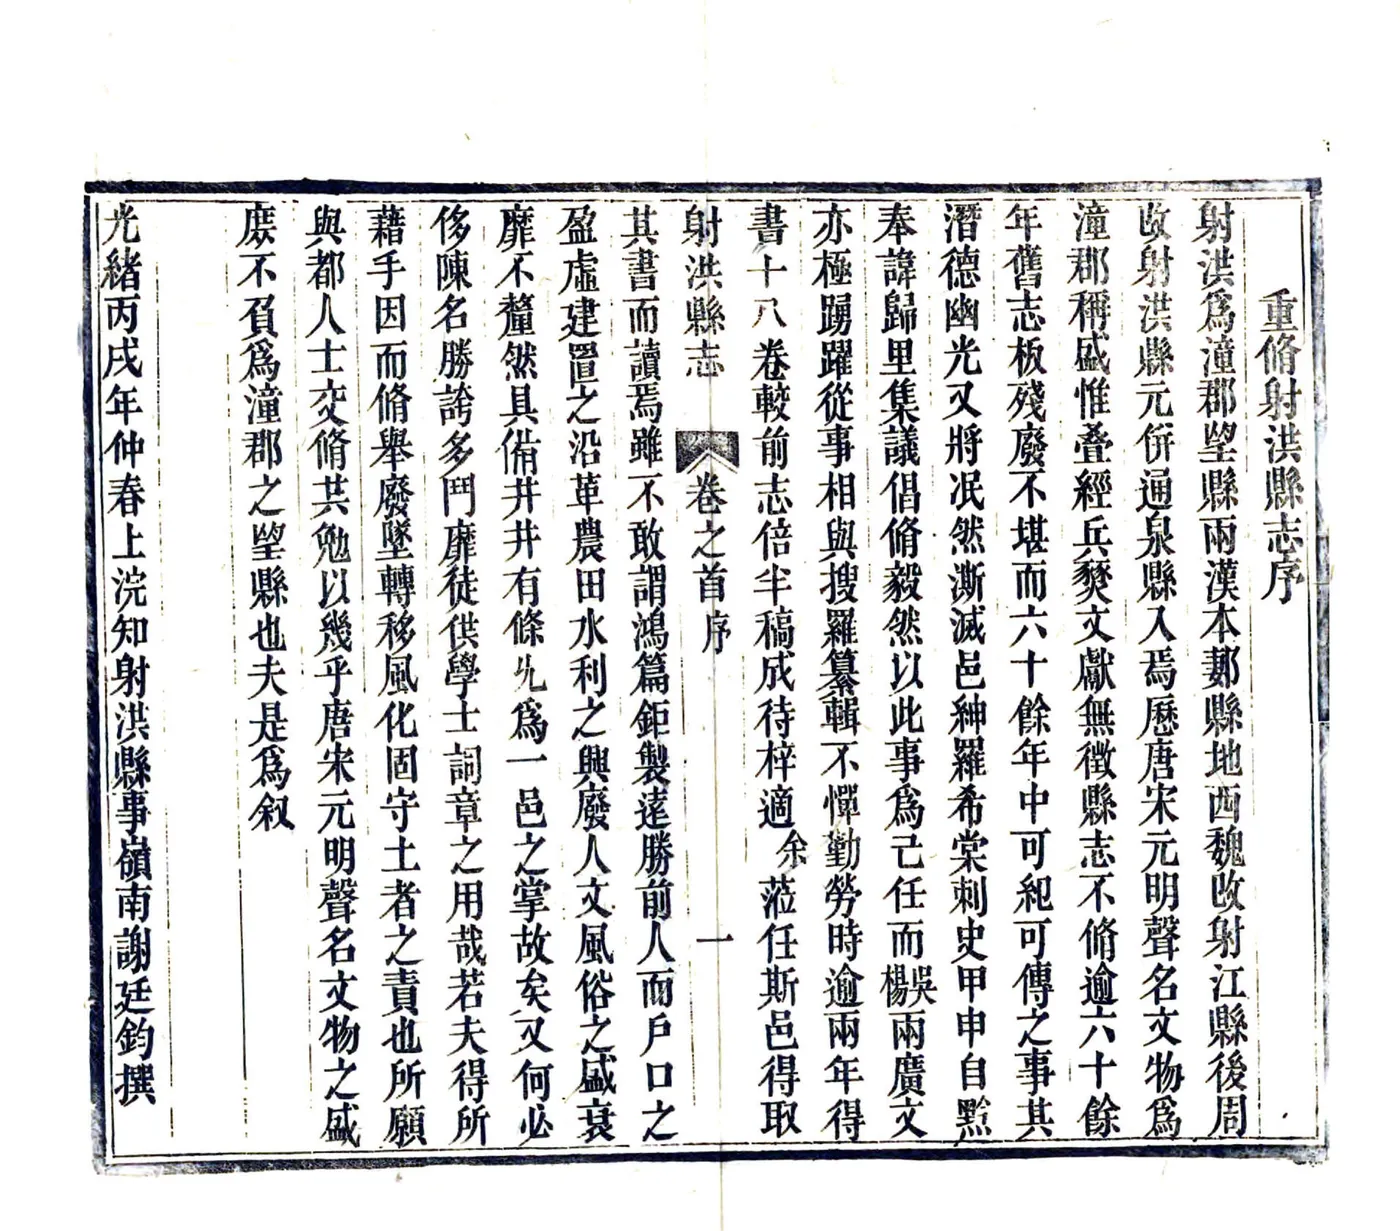 重脩射洪縣志序
射洪爲潼郡望縣兩漢本郪縣地西魏改射江縣後周
改射洪縣元併通泉縣入焉歷唐宋元明聲名文物爲
潼郡稱盛惟叠經兵燹文獻無徵縣志不脩逾六十餘
年舊志板殘廢不堪而六十餘年中可紀可傳之事其
潛德幽光又將泯然澌滅邑紳羅希棠刺史甲申自黔
奉諱歸里集議倡脩毅然以此事爲己任而吳楊兩廣文
亦極踴躍從事相與搜羅纂輯不憚勤勞時逾兩年得
書十八卷較前志倍半稿成待梓適余蒞任斯邑得取
射洪縣志 卷之首 序 一
其書而讀焉雖不敢謂鴻篇鉅製遠勝前人而戶口之
盈虛建置之沿革農田水利之興廢人文風俗之盛衰
靡不釐然具備井井有條允爲一邑之掌故矣又何必
侈陳名勝誇多鬥靡徒供學士詞章之用哉若夫得所
藉手因而脩舉廢墜轉移風化固守土者之責也所願
與都人士交脩共勉以幾乎唐宋元明聲名文物之盛
庶不負爲潼郡之望縣也夫是爲叙
光緒丙戌年仲春上浣知射洪縣事嶺南謝廷鈞撰